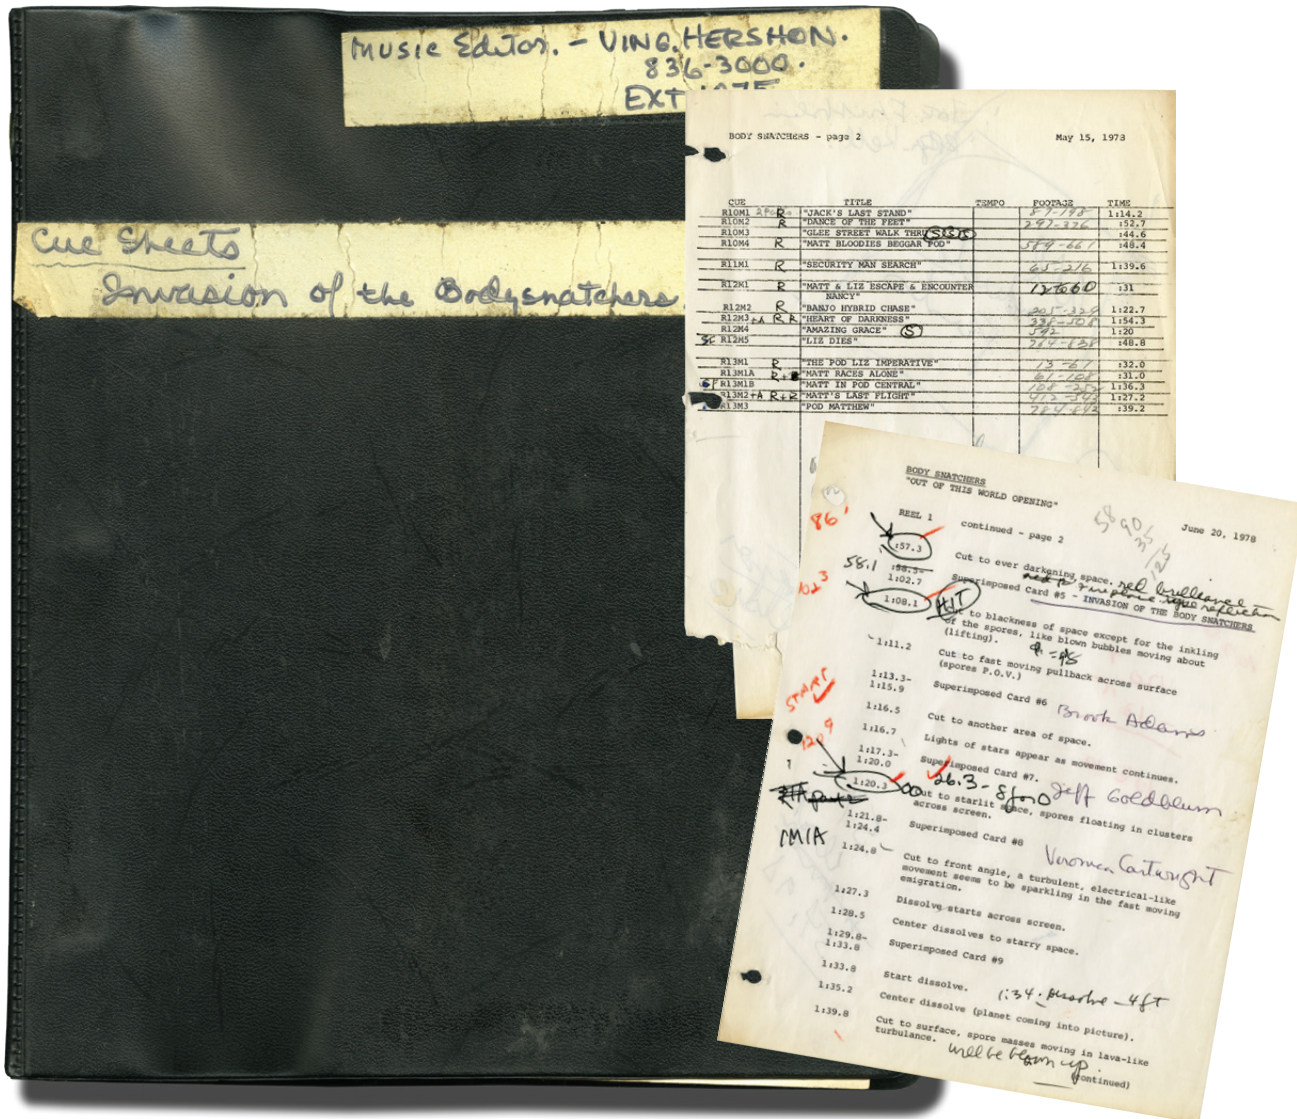 Music Editor. - VING. HERSHON.
836-3000.
EXT
Cue Sheets
Invasion of the Bodysnatchers
BODY SNATCHERS - page 2 May 15, 1978
CUE TITLE TEMPO FOOTAGE TIME
R10M1 R "JACK'S LAST STAND" 87-198 1:14.2
R10M2 R "DANCE OF THE FEET" 297-376 :52.7
R10M3 "GLEE STREET WALK THRU :44.6
R10M4 R "MATT BLOODIES BEGGAR POD" 589-661 :48.4
R11M1 R "SECURITY MAN SEARCH" 65-216 1:39.6
R12M1 R "MATT & LIZ ESCAPE & ENCOUNTER :31
NANCY"
R12M2 R "BANJO HYBRID CHASE" 205-329 1:22.7
R12M3+A R R "HEART OF DARKNESS" 338-508 1:54.3
R12M4 "AMAZING GRACE" (S) 592 1:20
R12M5 "LIZ DIES" 764-838 :48.8
R13M1 R "THE POD LIZ IMPERATIVE" 13-61 :32.0
R13M1A R+ "MATT RACES ALONE" 61-108 :31.0
R13M1B "MATT IN POD CENTRAL" 108-252 1:36.3
R13M2+A R+R "MATT'S LAST FLIGHT" 412-543 1:27.2
R13M3 "POD MATTHEW" 784-842 :39.2
BODY SNATCHERS
"OUT OF THIS WORLD OPENING"
REEL 1 continued - page 2 June 20, 1978
86'
:57.3 Cut to ever darkening space. red brilliance
58.1 :58.3-
1:02.7 Superimposed Card #5 - INVASION OF THE BODY SNATCHERS
102 3
1:08.1 HIT Cut to blackness of space except for the inkling
of the spores, like blown bubbles moving about
(lifting).
1:11.2 Cut to fast moving pullback across surface
(spores P.O.V.)
1:13.3-
1:15.9 Superimposed Card #6 Brook Adams
START
1:16.5 Cut to another area of space.
1:16.7 Lights of stars appear as movement continues.
120 9
1:17.3-
1:20.0 Superimposed Card #7. Jeff Goldblum.
1:20.3 26.3 - Cut to starlit space, spores floating in clusters
across screen.
1:21.8-
1:24.4 Superimposed Card #8 Veronica Cartwright
1M1A
1:24.8 Cut to front angle, a turbulent, electrical-like
movement seems to be sparkling in the fast moving
emigration.
1:27.3 Dissolve starts across screen.
1:28.5 Center dissolves to starry space.
1:29.8-
1:33.8 Superimposed Card #9
1:33.8 Start dissolve. 1:34. Dissolve - 4ft
1:35.2 Center dissolve (planet coming into picture).
1:39.8 Cut to surface, spore masses moving in lava-like
turbulance. will be blown up.
(continued)